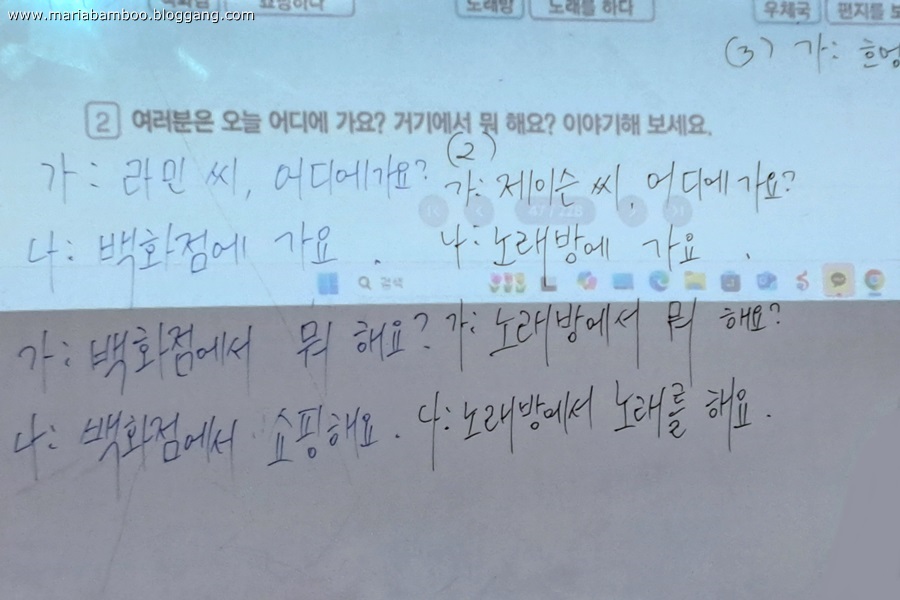 www.mariabamboo.bloggang.com
쇼핑하다
노래방 노래를 하다
우체국 편지를
(3) 가:
2 여러분은 오늘 어디에 가요? 거기에서 뭐 해요? 이야기해 보세요.
가: 라민 씨, 어디에가요?
나: 백화점에 가요.
가: 백화점에서 뭐 해요?
나: 백화점에서 쇼핑해요.
(2)
가: 제이슨 씨, 어디에 가요?
나: 노래방에 가요.
가: 노래방에서 뭐 해요?
나: 노래방에서 노래를 해요.
67 / 228
검색